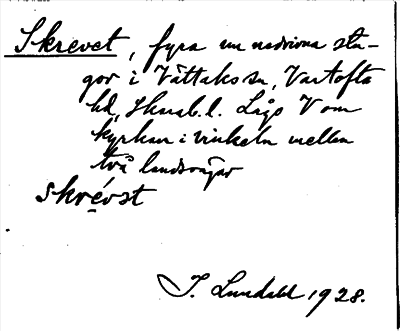 Skrevet, fyra nu nedrivna stu-
gor i Vättaks sn, Vartofta
hd, Skarab. l. Lågo V om
kyrkan i vinkeln mellan
två landsvägar
skrévət
J. Lundahl 1928.